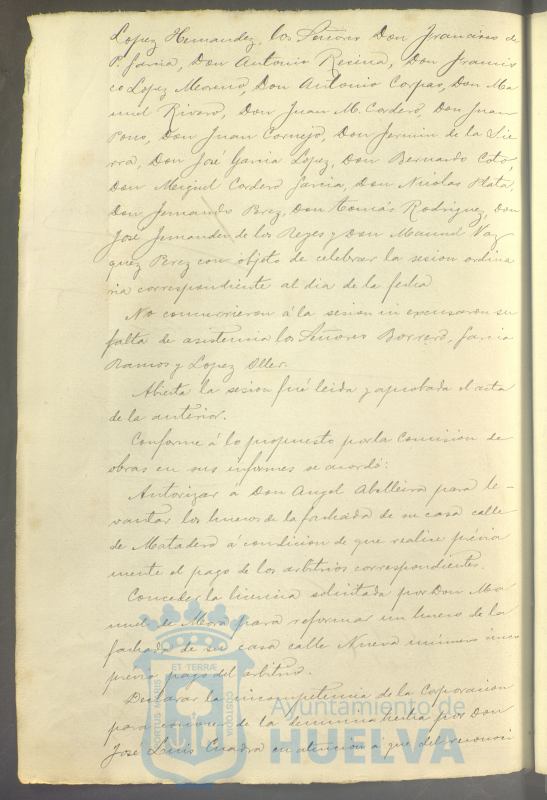 Lopez Hernandez, los Señores Don Francisco de
P. Garcia, Don Antonio Recina, Don Francis
co Lopez Moreno, Don Antonio Corpas, Don Ma
nuel Rivero, Don Juan M. Cordero, Don Juan
Pons, Don Juan Cornejo, Don Fermin de la Sie
rra, Don José Garcia Lopez, Don Bernardo Coto,
Don Miguel Cordero Garcia, Don Nicolas Plata,
Don Fernando Brez, Don Tomás Rodriguez, Don
José Fernandez de los Reyes y Don Manuel Vaz
quez Perez con objeto de celebrar la sesion ordina
ria correspondiente al dia de la fecha
No concurrieron á la sesion ni excusaron su
falta de asistencia los Señores Borrero, Garcia
Ramos y Lopez Oller.
Abierta la sesion fué leida y aprobada el acta
de la anterior.
Conforme á lo propuesto por la Comision de
obras en sus informes se acordó:
Autorizar á Don Angel Abelleira para le-
vantar los huecos de la fachada de su casa calle
de Matadero á condicion de que realice prévia
mente el pago de los arbitrios correspondientes.
Conceder la licencia solicitada por Don Ma
nuel de Mora para reformar un hueco de la
fachada de su casa calle Nueva número cinco
previo pago del arbitrio.
Declarar la incompetencia de la Corporacion
para conocer de la denuncia hecha por Don
José Luis Cuadra en atencion á que del reconoci
PORTUS MARIS
ET TERRÆ
CUSTODIA
Ayuntamiento de
HUELVA